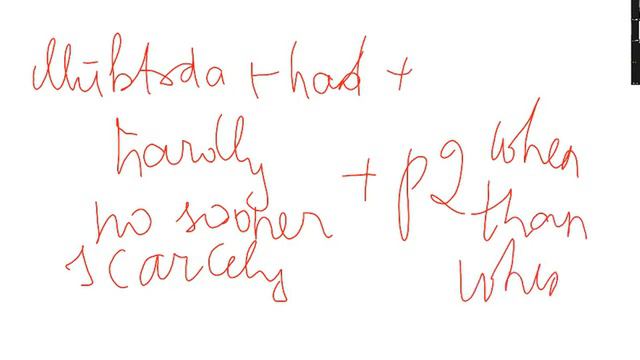 Mubtada + had +
hardly
no sooner + P2
scarcely
when
than
when